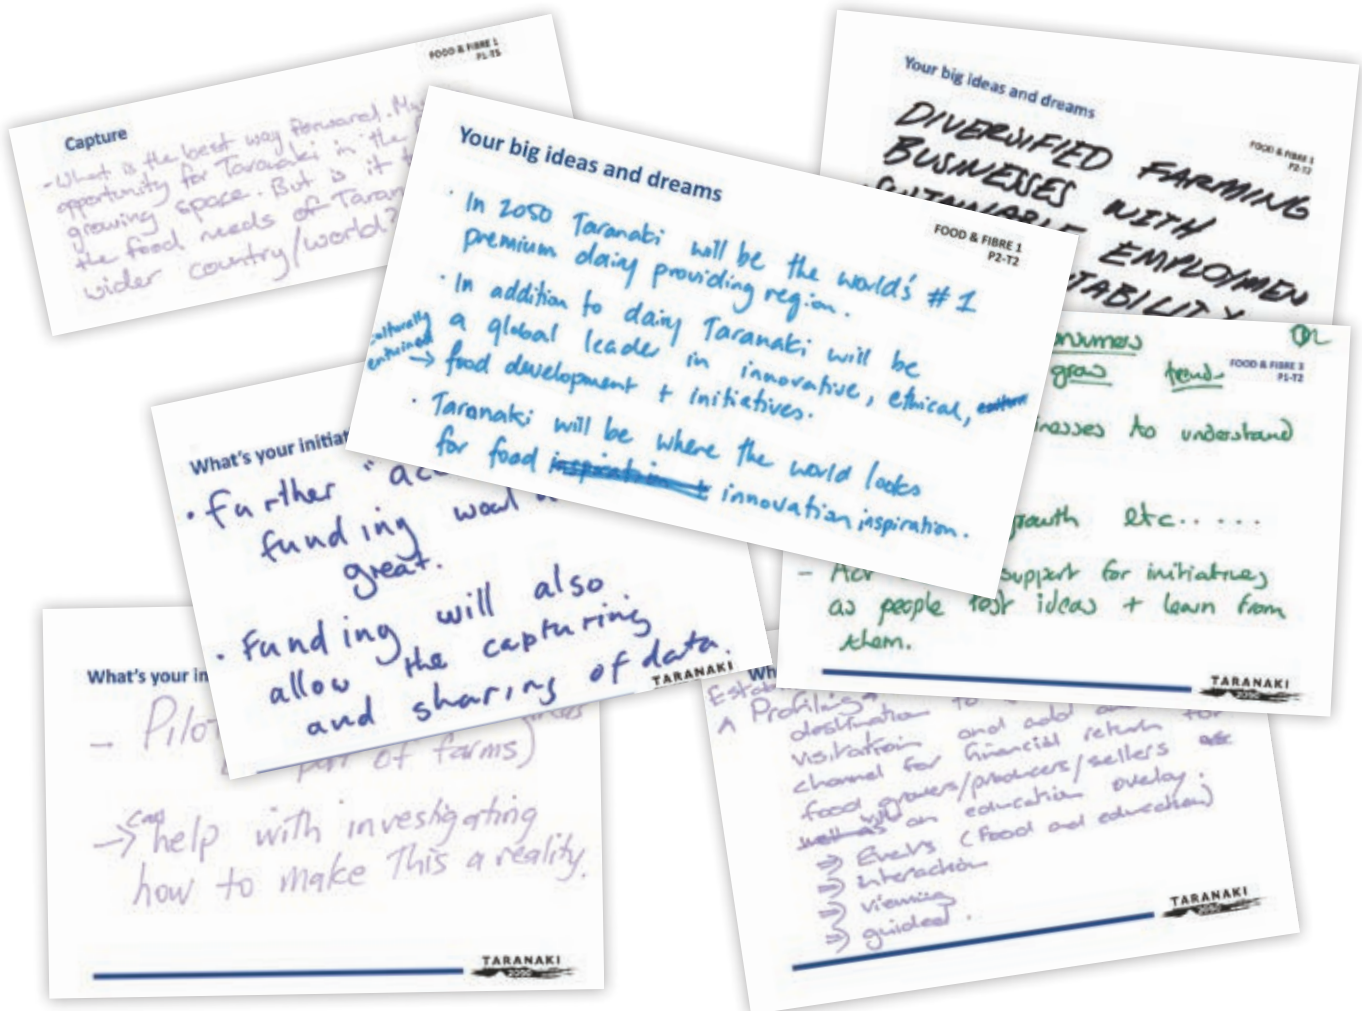 FOOD & FIBRE 1
P1-T5
Capture
- What is the best way forward.
opportunity for Taranaki in the
growing space. But is it
the food needs of
wider country/world?
Your big ideas and dreams
FOOD & FIBRE 1
P2-T2
· In 2050 Taranaki will be the world's #1
premium dairy providing region.
· In addition to dairy Taranaki will be
a global leader in innovative, ethical,
culturally
entwined
→ food development + initiatives.
· Taranaki will be where the world looks
for food inspiration + innovation inspiration.
Your big ideas and dreams
P2-T2
DIVERSIFIED FARMING
BUSINESSES WITH
EMPLOYMEN
FOOD & FIBRE 3
P1-T2
grow trend
to understand
etc.....
- support for initiatives
as people test ideas + learn from
them.
TARANAKI
2050
What's your
· Further
funding
great.
· Funding will also
allow the capturing
and sharing of data.
TARANAKI
What's your
-
part of farms)
can
→ help with investigating
how to make This a reality.
TARANAKI
2050
Profiling
destination to
visitation and add
channel for financial return for
food growers/producers/sellers
well as an education overlay.
⇒ Events (Food and education)
⇒ interaction
⇒ viewing
⇒ guided.
TARANAKI
2050